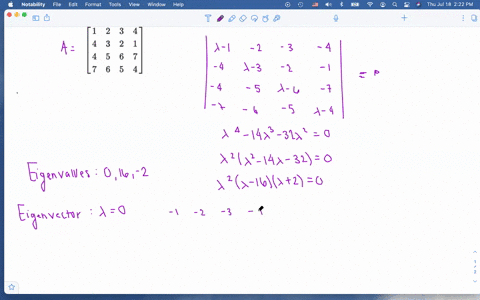 Notability File Edit View Window Help Thu Jul 18 2:22 PM
A = [1 2 3 4
4 3 2 1
4 5 6 7
7 6 5 4]
|λ-1 -2 -3 -4
-4 λ-3 -2 -1
-4 -5 λ-6 -7
-7 -6 -5 λ-4| =
λ⁴-14λ³-32λ²=0
λ²(λ²-14λ-32)=0
λ²(λ-16)(λ+2)=0
Eigenvalves: 0, 16, -2
Eigenvector: λ=0 -1 -2 -3 -